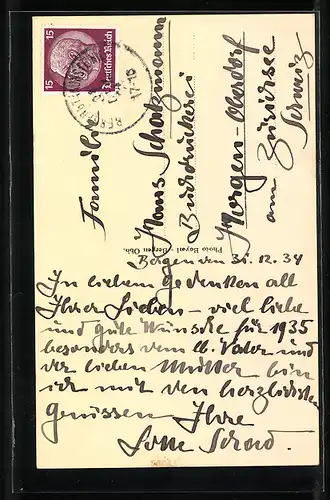 15
15
Deutsches Reich
Familie
Hans Schatzmann
Buchdruckerei
Horgen-Oberdorf
am Zürichsee
Schweiz
Photo Bayerl - Bergen Obb.
Bergen den 31.12.34
In liebem Gedenken all
Ihrer Lieben - viel liebe
und gute Wünsche für 1935
besonders dem lb. Vater und
der lieben Mutter bin
ich mit den herzlichsten
Grüssen Ihre
Lotte